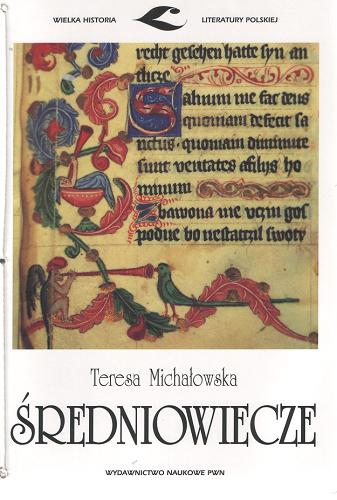 WIELKA HISTORIA LITERATURY POLSKIEJ
recht gesehen hatte syn an
tlicze
Saluum me fac deus
quoniam defecit sa
nctus · quoniam diminute
sunt ueritates a filijs ho
minum
Zbawona me vczyn gos
podne bo nestatczil swoty
Teresa Michałowska
ŚREDNIOWIECZE
WYDAWNICTWO NAUKOWE PWN